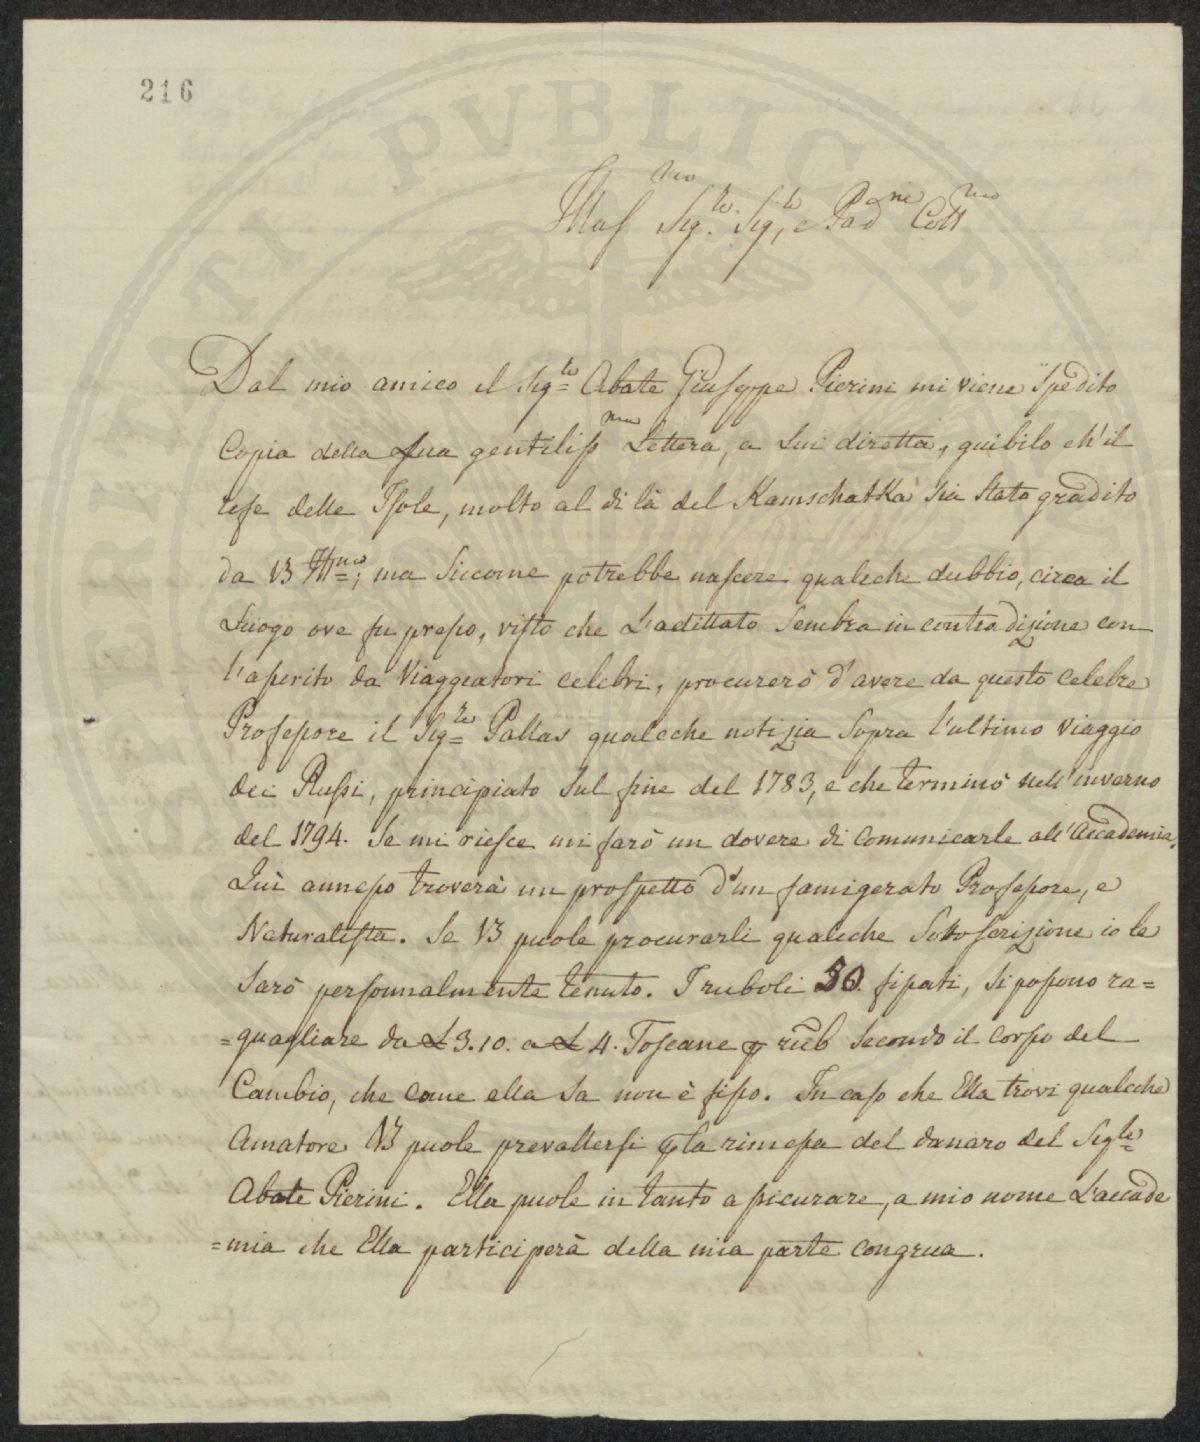 216
Illus.mo Sig.re Sig.re e Pad.ne Coll.mo
Dal mio amico il Sig.re Abate Giuseppe Pierini mi viene spedito
Copia della sua gentiliss.ma Lettera, a Lui diretta, guibilo ch'il
tese delle Isole, molto al di là del Kamschatka sia stato gradito
da VS Ill.ma; ma siccome potrebbe nascere qualche dubbio, circa il
Luogo ove fu preso, visto che L'adittato sembra in contradizione con
l'aserito da Viaggiatori celebri, procurerò d'avere da questo celebre
Professore il Sig.re Pallas qualche notizia sopra l'ultimo viaggio
dei Russi, principiato sul fine del 1783, e che terminò nell'inverno
del 1794. Se mi riesce mi farò un dovere di comunicarle all'Accademia.
Quì annesso troverà un prospetto d'un famigerato Professore, e
Naturalista. Se VS puole procurarli qualche Sottoscrizione io le
sarò personnalmente tenuto. I ruboli 50. fissati, si possono ra=
=guagliare da £ 3.10. a £ 4. Toscane ꝑ rub secondo il corso del
Cambio, che come ella sa non è fisso. In caso che Ella trovi qualche
Amatore VS puole prevallersi ꝑ la rimessa del danaro del Sig.re
Abate Pierini. Ella puole in tanto assicurare, a mio nome L'accade
=mia che Ella participerà della mia parte congrua.